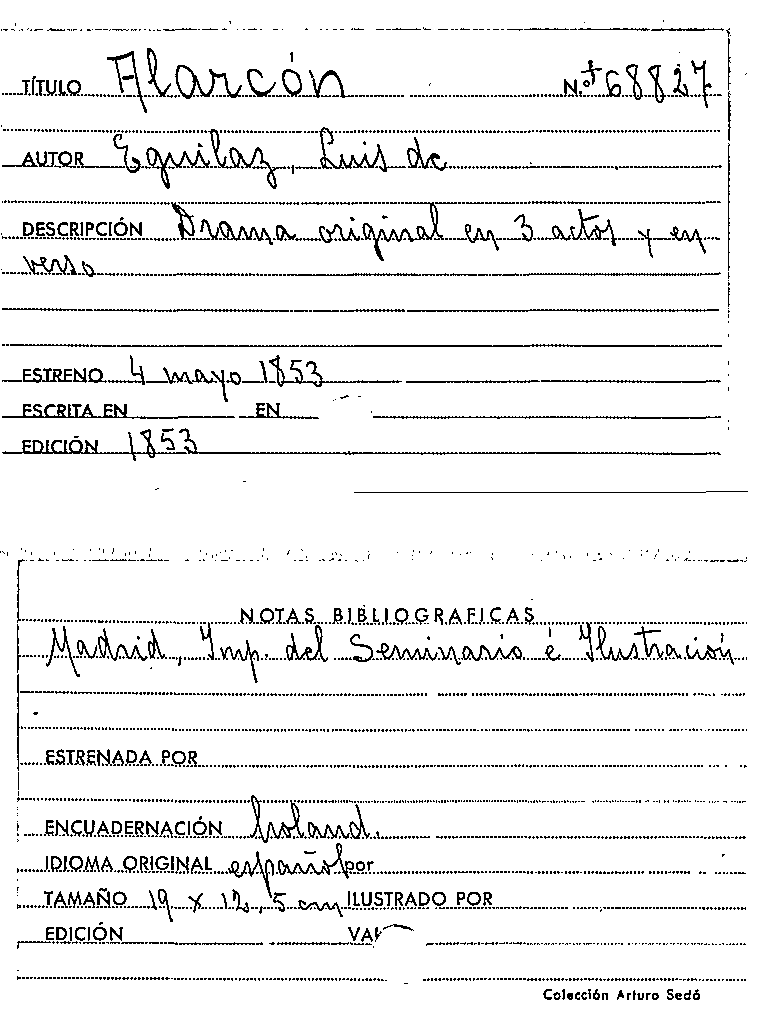 TÍTULO Alarcón N.º 68827
AUTOR Eguilaz, Luis de
DESCRIPCIÓN Drama original en 3 actos y en
verso
ESTRENO 4 mayo 1853
ESCRITA EN EN
EDICIÓN 1853
NOTAS BIBLIOGRAFICAS
Madrid, Imp. del Seminario é Ilustración
ESTRENADA POR
ENCUADERNACIÓN holand.
IDIOMA ORIGINAL español por
TAMAÑO 19 x 12,5 cm ILUSTRADO POR
EDICIÓN
Colección Arturo Sedó